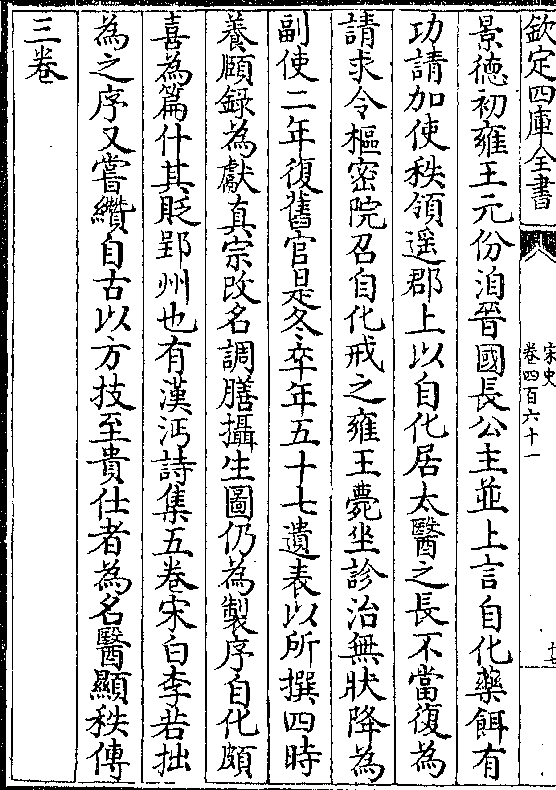 欽定四庫全書
宋史
卷四百六十一
景徳初雍王元份洎晉國長公主並上言自化藥餌有
功請加使秩領遥郡上以自化居太醫之長不當復為
請求令樞密院召自化戒之雍王薨坐診治無狀降為
副使二年復舊官是冬卒年五十七遺表以所撰四時
養頤録為獻真宗改名調膳攝生圖仍為製序自化頗
喜為篇什其貶郢州也有漢沔詩集五卷宋白李若拙
為之序又嘗纘自古以方技至貴仕者為名醫顯秩傳
三卷